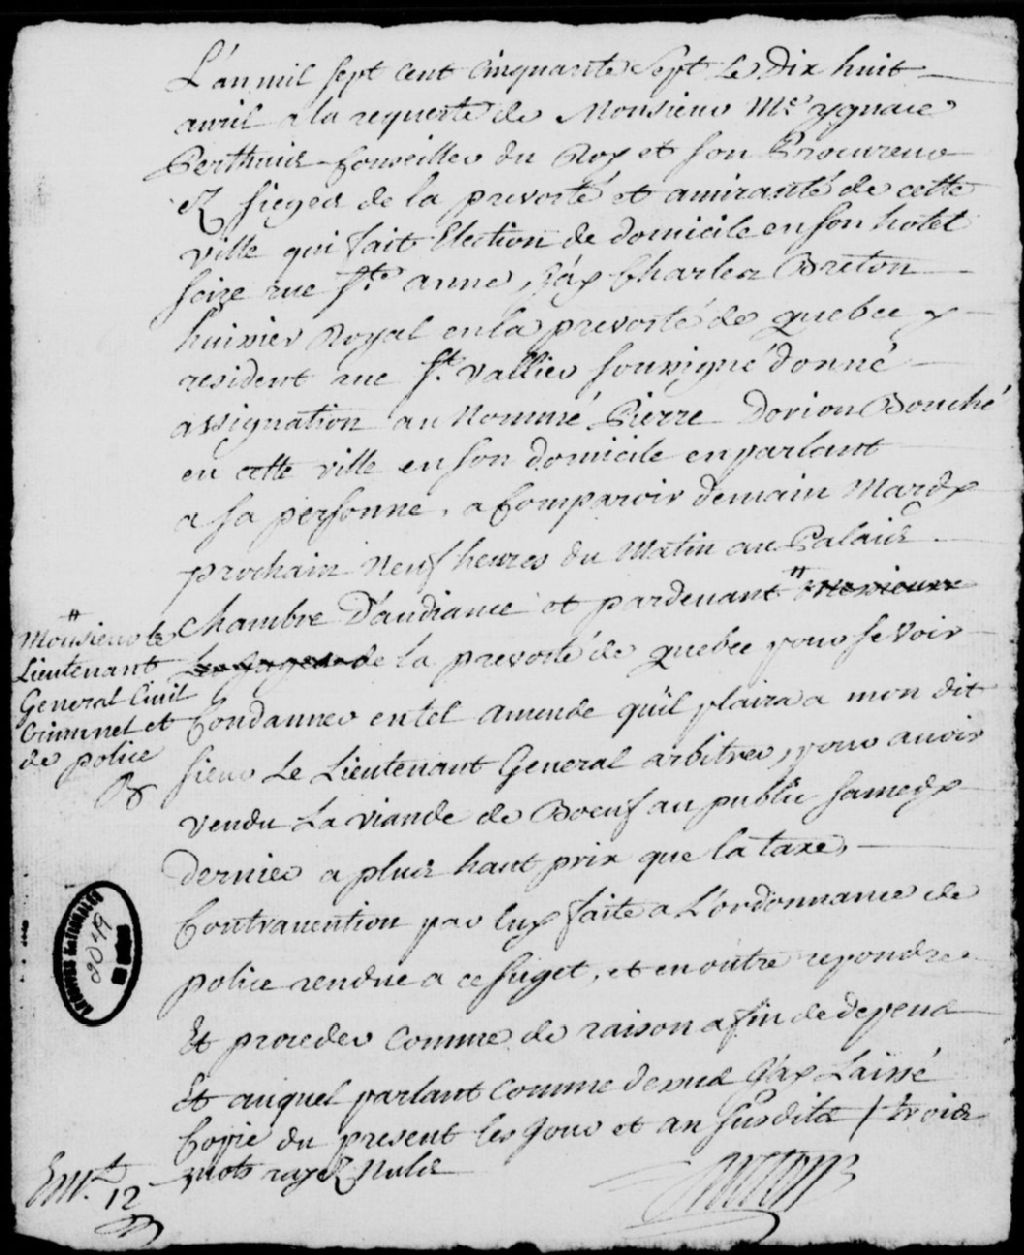 L'an mil sept cent Cinquante Sept le dix huit
avril a la requeste de Monsieur Me ygnace
Perthuis Conseiller du Roy et son Procureur
ez sieges de la prevosté et amirauté de cette
ville qui fait Election de domicile en son hotel
size rue Ste anne, J'ay Charles Breton
huissier Royal en la prevosté de quebec y
resident rue St. Vallier soussigné donné
assignation au Nommé Pierre Dorion Bouché
en cette ville en son domicile en parlant
a sa personne, a Comparoir demain Mardy
prochain Neuf heures du Matin au Palais
Chambre D'audiance et pardevant # Messieurs
# Monsieur le
Lieutenant
General Civil
Criminel et
de police
de la prevosté de quebec pour se Voir
Condanner en tel amende qu'il plaira a mon dit
sieur Le Lieutenant General arbitrer, pour avoir
vendu La viande de Boeuf au public samedy
dernier a plus haut prix que la taxe,
Contravention par luy faite a L'ordonnance de
police rendue a ce suget, et en outre repondre
Et proceder Comme de raison a fin de depens
Et auquel parlant Comme dessus J'ay Laissé
Copie du present les jour et an susdits / trois
mots rayez Nuls
12
ARCHIVES NATIONALES
2019